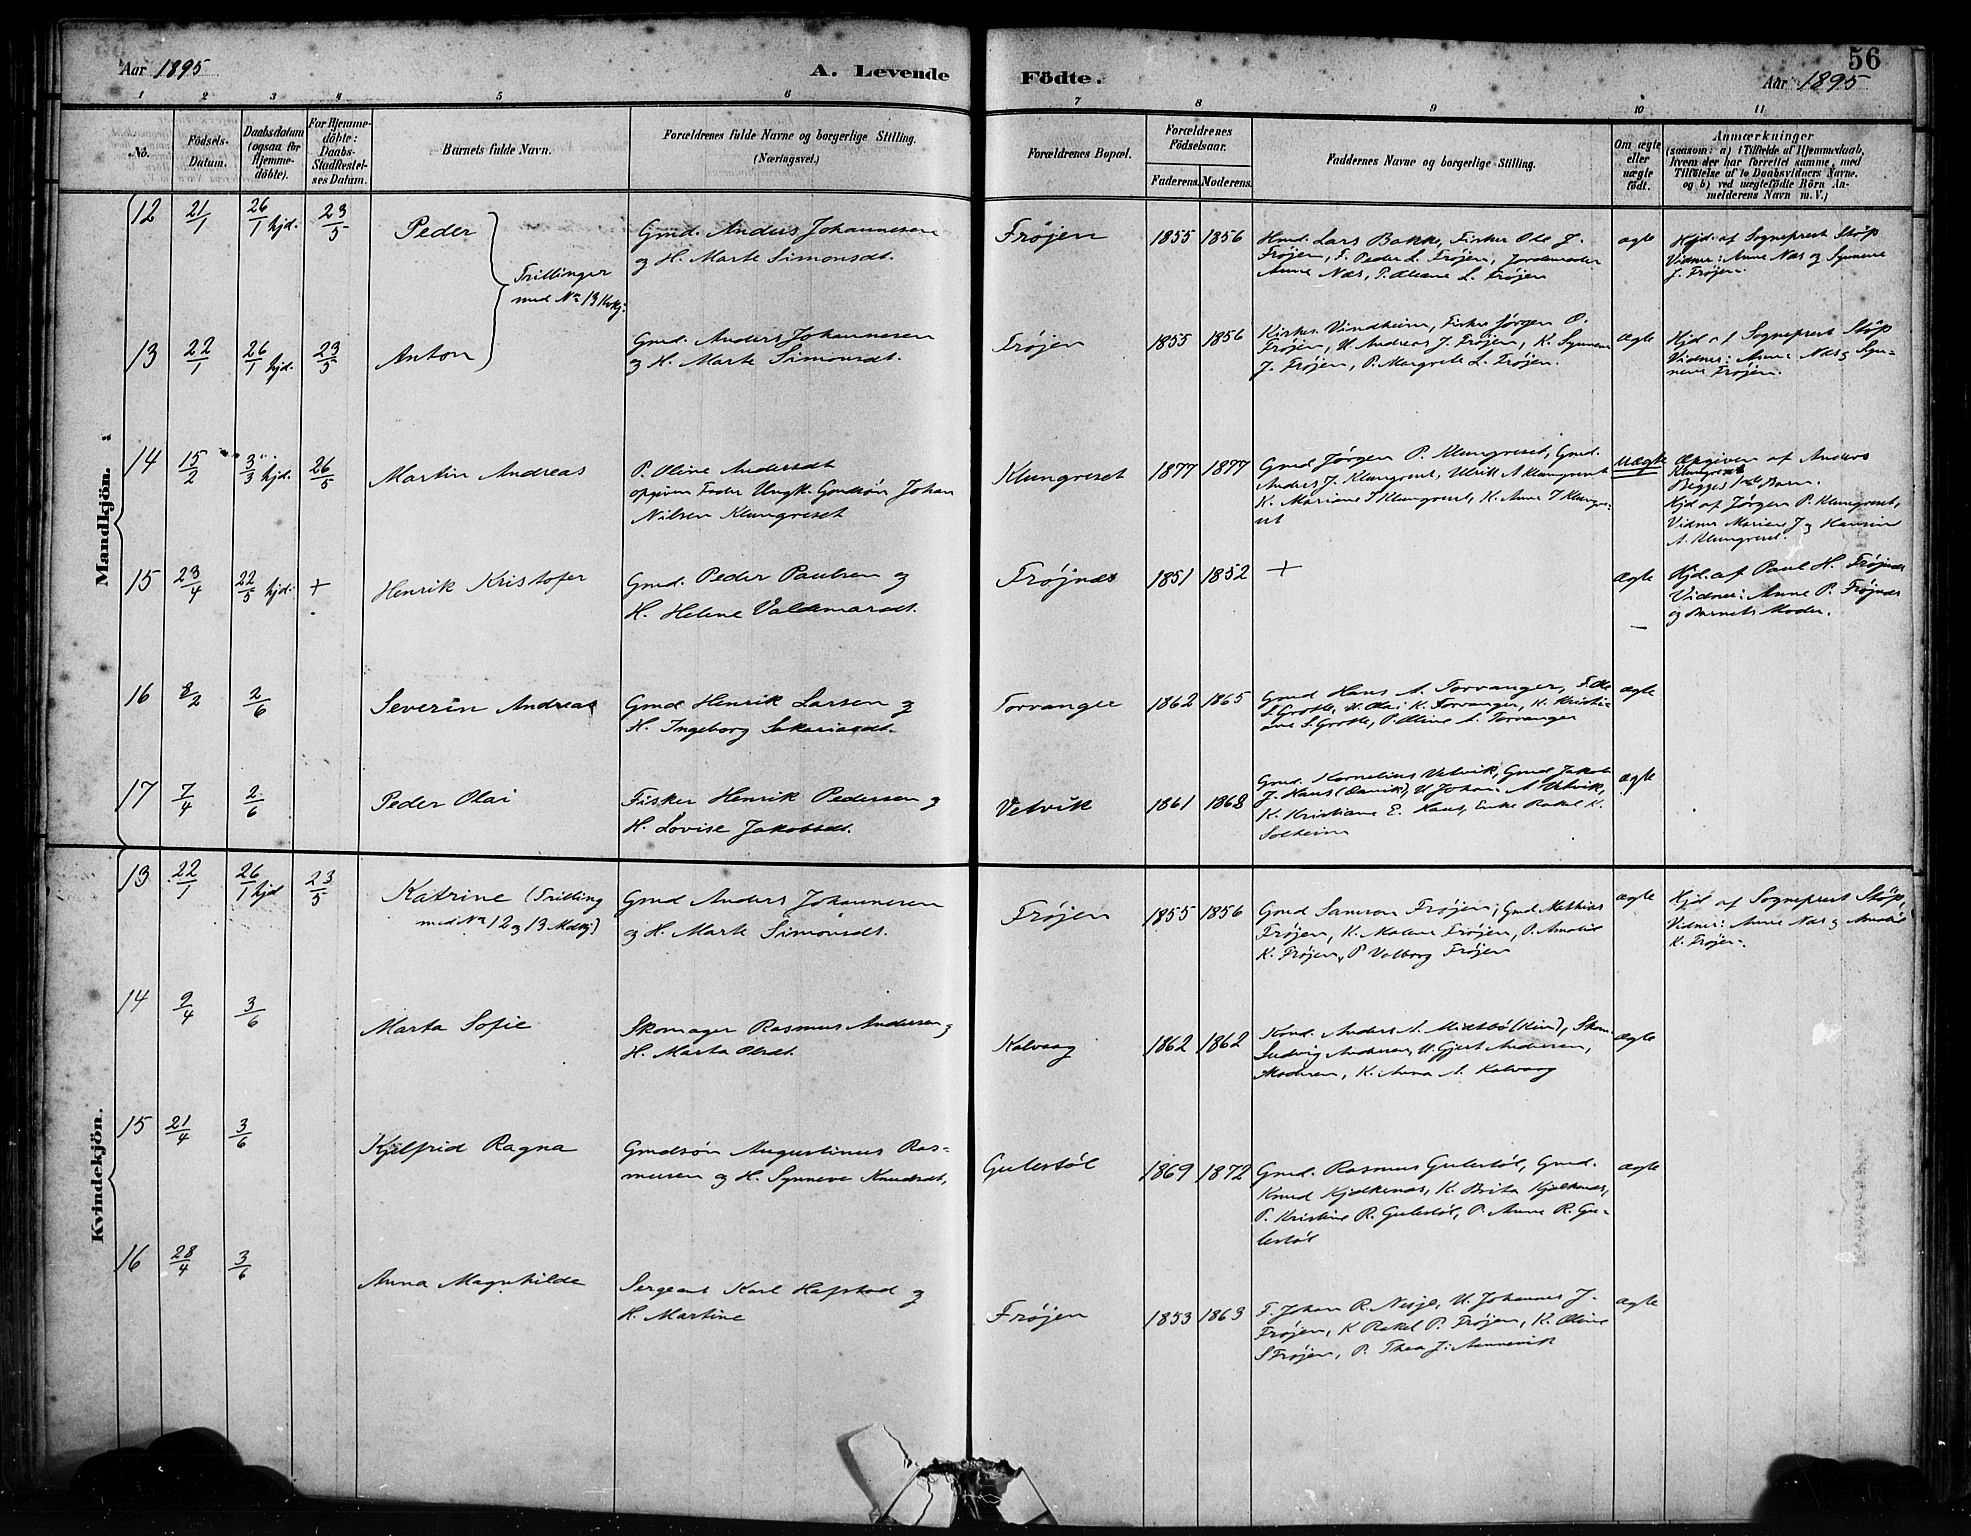 56
Aar 1895
A. Levende
Födte.
Aar 1895
1 2 3 4 5 6 7 8 9 10 11
No.
Födsels-Datum.
Daabsdatum (ogsaa for Hjemmedöbte).
For Hjemmedöbte: Daabs-Stadfæstelses Datum.
Barnets fulde Navn.
Forældrenes fulde Navne og borgerlige Stilling.
(Næringsvei.)
Forældrenes Bopæl.
Forældrenes Födselsaar.
Faderens. Moderens.
Faddernes Navne og borgerlige Stilling.
Om ægte eller uægte födt.
Anmærkninger
(saasom: a) i Tilfælde af Hjemmedaab,
hvem der har forrettet samme, med
Tilföielse af to Daabsvidners Navne.
og b) ved uægtefödte Börn An-
melderens Navn m. V.)
Mandkjön.
12 21/1 26/1 hjd. 23/5 Peder
Trillinger
med No 13 Kvkj.
Gmd. Anders Johannesen
og H. Marte Simonsdt.
Frøjen 1855 1856
Gmd. Lars Bakke, Fisker Ole J.
Frøjen, F. Peder L. Frøjen, Jordemoder
Anne Næs, P. Oleane L. Frøjen
ægte
Hjd. af Sogneprest Støp
Vidner: Anne Næs og Synneve
J. Frøjen.
13 22/1 26/1 hjd. 23/5 Anton
Gmd. Anders Johannesen
og H. Marte Simonsdt.
Frøjen 1855 1856
Kirkes. Vindheim, Fisker Jørgen O.
Frøjen, U. Andreas J. Frøjen, K. Synneve
J. Frøjen, P. Margrete L. Frøjen.
ægte
Hjd af Sogneprest Støp
Vidner: Anne Næs og Syn-
neve Frøjen.
14 15/2 3/3 hjd. 26/5 Martin Andreas
P. Oline Andersdt
opgiven Fader Ungk. Gmdsøn Johan
Nilsen Klungreset
Klungreset 1877 1877
Gmd Jørgen P. Klungreset, Gmd.
Anders J. Klungreset, Ulrik A Klungreset
K. Mariane J Klungreset, K. Anne J Klungre-
set
uægte
Opgiven af Anders
Klungreset
Begges 1ste Barn.
Hjd af Jørgen P. Klungreset,
Vidner Mariane J og Hansine
A. Klungreset.
15 23/4 22/5 hjd. + Henrik Kristofer
Gmd. Peder Paulsen og
H. Helene Valdemarsdt.
Frøjnæs 1851 1852 +
ægte
Hjd. af Paul H. Frøjnæs
Vidner: Anne P. Frøjnæs
og Barnets Moder.
16 8/2 2/6 Severin Andreas
Gmd Henrik Larsen og
H. Ingeborg Sakariasdt.
Torvanger 1862 1865
Gmd Hans A. Torvanger, F. Ole
S. Grotle, U. Olai K. Torvanger, K. Kristi-
ane S. Grotle, P. Oline L. Torvanger
ægte
17 7/4 2/6 Peder Olai
Fisker Henrik Pedersen og
H. Lovise Jakobsdt.
Vetvik 1861 1868
Gmd. Kornelius Vetvik, Gmd Jakob
J. Haus (Davik), U Johan A Vetvik,
K. Kristiane E. Haus, Enke Rakel K.
Solheim
ægte
Kvindekjön.
13 22/1 26/1 hjd 23/5 Katrine (Trilling
med No 12 og 13 Mdkj.)
Gmd Anders Johannesen
og H. Marte Simonsdt.
Frøjen 1855 1856
Gmd Samson Frøjen, Gmd. Mathias
Frøjen, K. Malene Frøjen, P. Amalie
K. Frøjen, P Valborg Frøjen
ægte
Hjd af Sogneprest Støp,
Vidner: Anne Næs og Amalie
K. Frøjen.
14 9/4 3/6 Marta Sofie
Skomager Rasmus Andersen og
H. Marta Olsdt.
Kalvaag 1862 1862
Anders A. Midtbø (Kinn), Skom.
Ludvig Andersen, U. Gjert Andersen,
Moderen, K. Anna A. Kalvaag
ægte
15 21/4 3/6 Kjelfrid Ragna
Gmdsøn Augustinus Ras-
mussen og H. Synneve Knudsdt.
Gulestøl 1869 1872
Gmd. Rasmus Gulestøl, Gmd.
Knud Kjelkenæs, K. Brita Kjelkenæs,
P. Kristine R. Gulestøl, P. Anne R. Gu-
lestøl
ægte
16 28/4 3/6 Anna Magnhilde
Sergeant Karl Hafstad og
H. Martine
Frøjen 1853 1863
F. Johan R. Nesje, U. Johannes J.
Frøjen, K Rakel P. Frøjen, K. Oline
S Frøjen, P. Thea J. Annevik
ægte